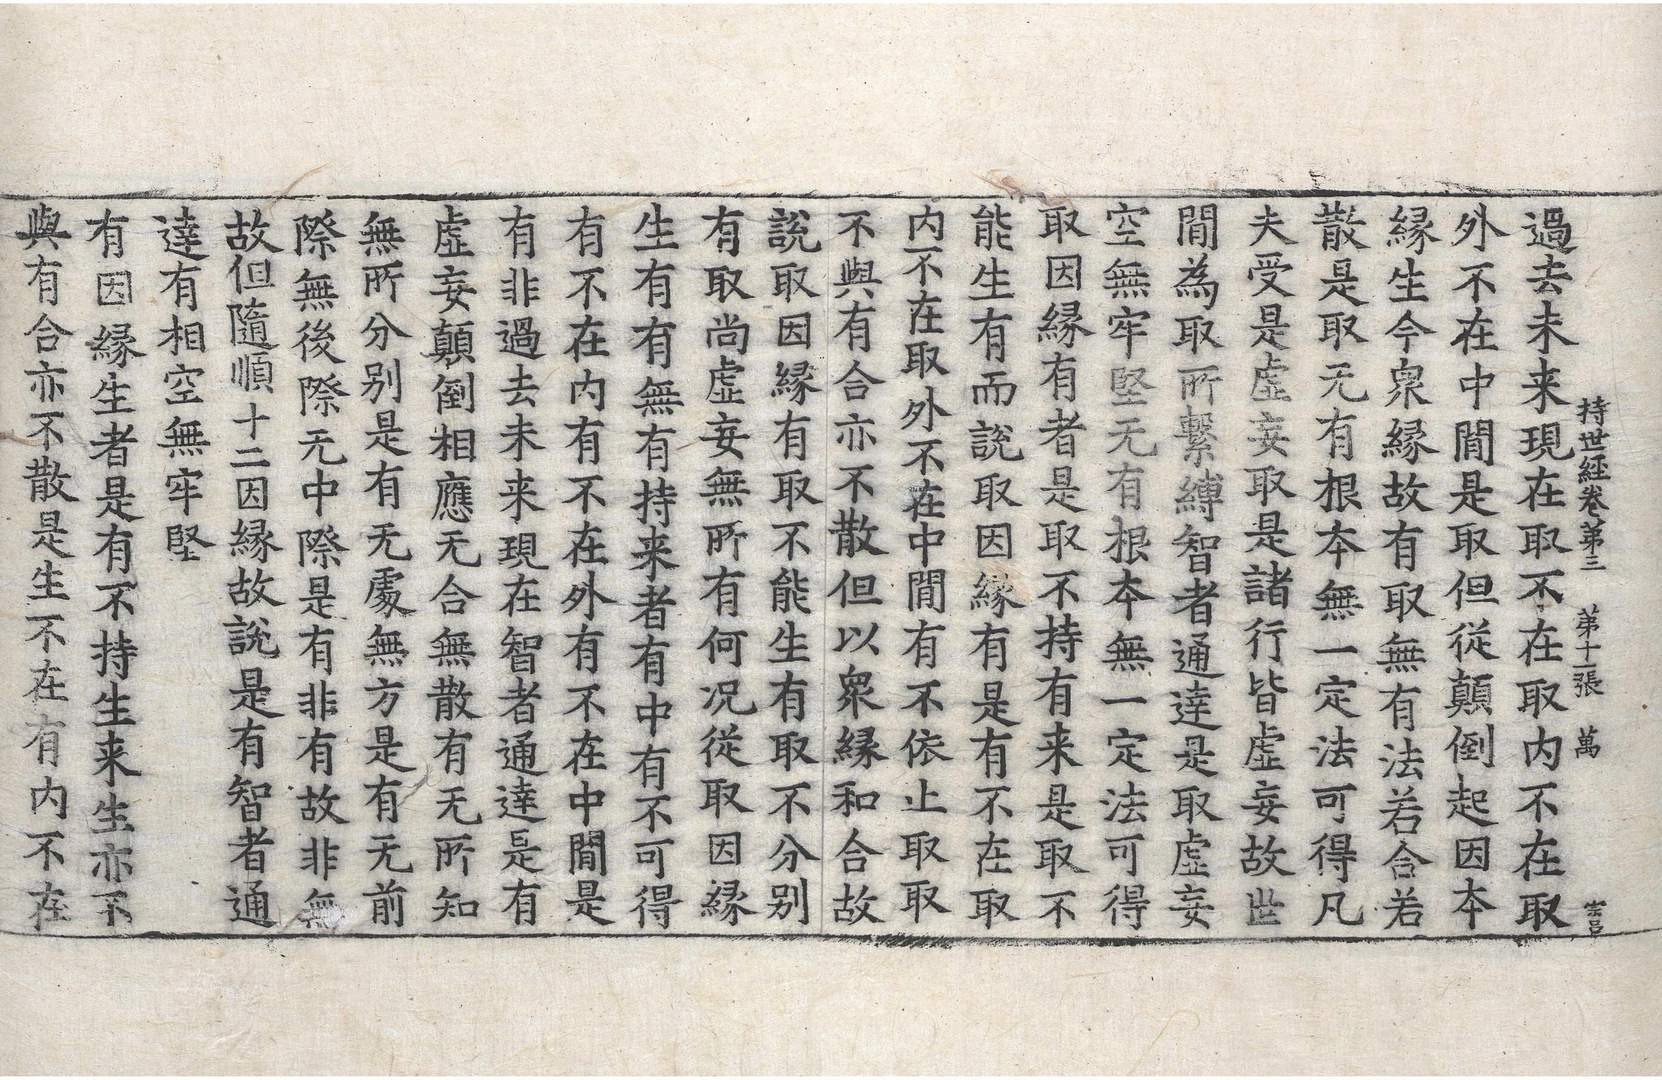 持世経卷第三 第十一張 萬
過去未来現在取不在取内不在取
外不在中間是取但従顛倒起因本
縁生今衆縁故有取無有法若合若
散是取无有根本無一定法可得凡
夫受是虚妄取是諸行皆虚妄故世
間為取所繋縛智者通達是取虚妄
空無牢堅无有根本無一定法可得
取因縁有者是取不持有来是取不
能生有而説取因縁有是有不在取
内不在取外不在中間有不依止取取
不與有合亦不散但以衆縁和合故
説取因縁有取不能生有取不分别
有取尚虚妄無所有何况従取因縁
生有有無有持来者有中有不可得
有不在内有不在外有不在中間是
有非過去未来現在智者通達是有
虚妄顛倒相應无合無散有无所知
無所分别是有无處無方是有无前
際無後際无中際是有非有故非無
故但隨順十二因縁故説是有智者通
達有相空無牢堅
有因縁生者是有不持生来生亦不
與有合亦不散是生不在有内不在